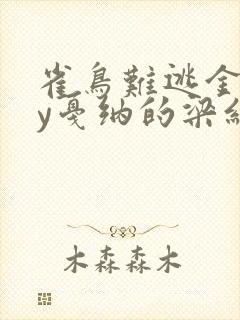 雀鳥難逃金
y戛纳的梁紅
木森森木